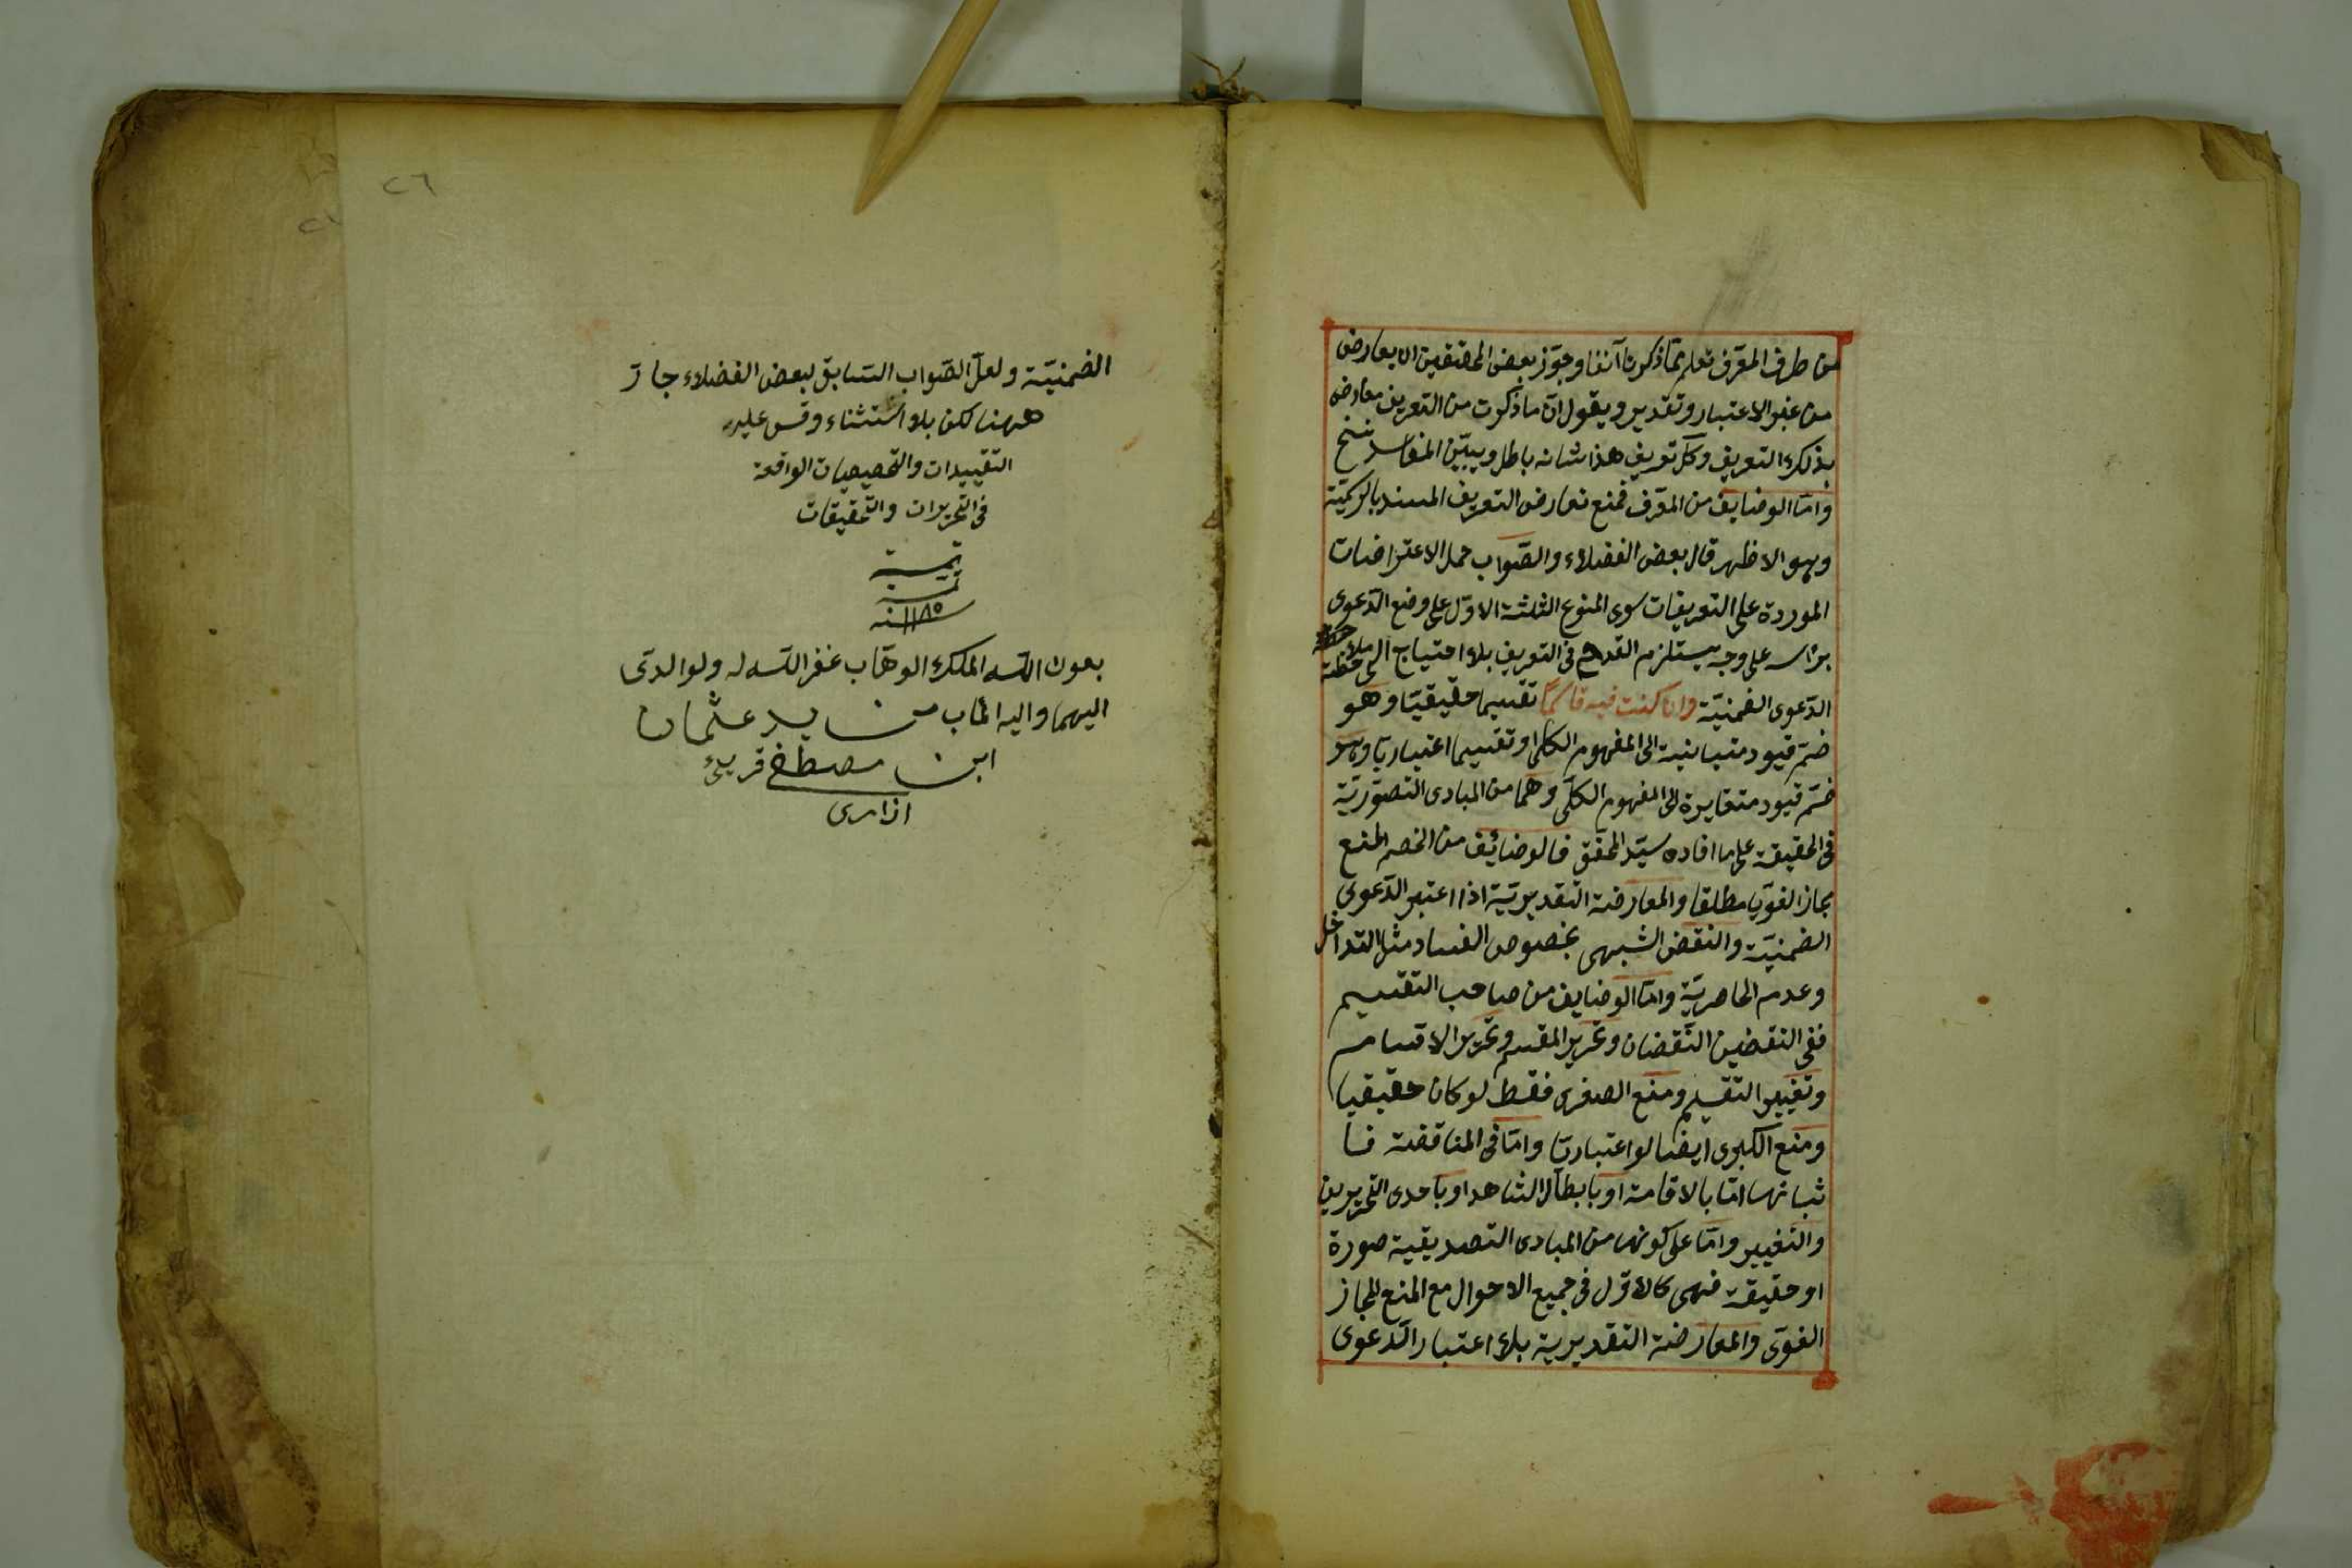 من طرف المعرف تعلم مما ذكرنا آنفا وجوز بعض المحققين ان يعارض
من غير الاعتبار وتقدير ويقول ان ما ذكرت من التعريف معارض
بذلك التعريف وكل تعريف هذا شانه باطل ويبين المفاسد
واما الوضايف من المعرف فمنع تعارض التعريف المسند بالرسمية
وهو الاظهر قال بعض الفضلاء والصواب حمل الاعتراضات
الموردة على التعريفات سوى المنوع الثلثة الاول على وضع الدعوى
برأسه على وجه يستلزم القدح في التعريف بلا احتياج الى ملاحظة
الدعوى الضمنية وان كنت فيه قاسمًا تقسيما حقيقيا وهو
ضم قيود متباينة الى المفهوم الكلي او تقسيما اعتباريا وهو
ضم قيود متغايرة الى المفهوم الكلي وهما من المبادى التصورية
في الحقيقة على ما افاده سيد المحقق فالوضائف من الخصم المنع
مجاز الغويا مطلقا والمعارضة التقديرية اذا اعتبر الدعوى
الضمنية والنقض الشبهى بخصوص الفساد مثل التداخل
وعدم الحاصرية واما الوضايف من صاحب التقسيم
ففى النقضين النقضان وتحرير المقسم وتحرير الاقسام
وتغيير التقسيم ومنع الصغرى فقط لو كان حقيقيا
ومنع الكبرى ايضا لو اعتباريا واما فى المناقضة فا
ثباتها اما بالاقامة او بابطال الشاهد او باحدى التحريرين
والتغيير واما على كونها من المبادى التصديقية صورة
او حقيقة فهى كالاول فى جميع الاحوال مع المنع المجاز
الغوى والمعارضة التقديرية بلا اعتبار الدعوى
٢٦
الضمنية ولعل الصواب السابق لبعض الفضلاء جار
ههنا لكن بلا استثناء وقس عليه
التقييدات والتخصيصات الواقعة
فى التحريرات والتحقيقات
تمت
تمت
سنة ١١٨٥
بعون الله الملك الوهاب غفر الله له ولوالدى
اليهما واليه المأب من يد عثمان
ابن مصطفى